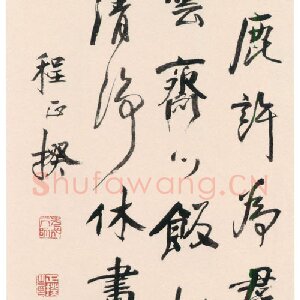 鹿許為君
雲齋心飯
清净休書
程正揆
Shufawang.CN